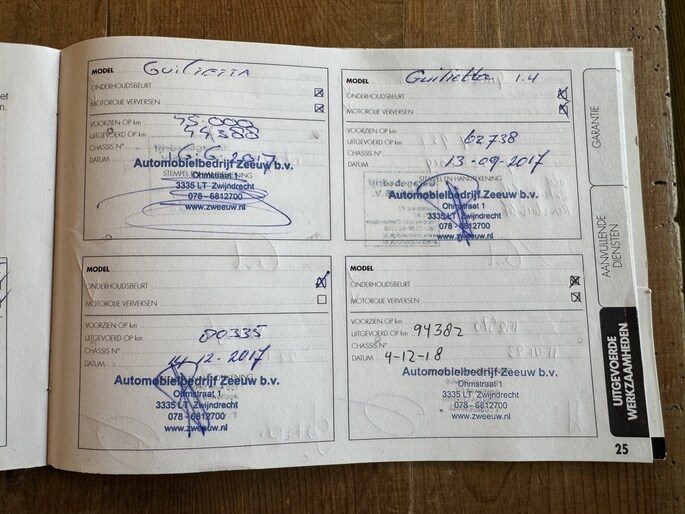 MODEL GUILIETTA
ONDERHOUDSBEURT
MOTOROLIE VERVERSEN
VOORZIEN OP km 45.000
UITGEVOERD OP km 44388
CHASSIS N°
DATUM 16.6.2017
STEMPEL EN HANDTEKENING
Automobielbedrijf Zeeuw b.v.
Ohmstraat 1
3335 LT Zwijndrecht
078 - 6812700
www.zweeuw.nl
MODEL Guilietta 1.4
ONDERHOUDSBEURT
MOTOROLIE VERVERSEN
VOORZIEN OP km
UITGEVOERD OP km 62738
CHASSIS N°
DATUM 13-09-2017
STEMPEL EN HANDTEKENING
Automobielbedrijf Zeeuw b.v.
Ohmstraat 1
3335 LT Zwijndrecht
078 - 6812700
www.zweeuw.nl
MODEL
ONDERHOUDSBEURT
MOTOROLIE VERVERSEN
VOORZIEN OP km
UITGEVOERD OP km 80335
CHASSIS N°
DATUM 14-12-2017
Automobielbedrijf Zeeuw b.v.
Ohmstraat 1
3335 LT Zwijndrecht
078 - 6812700
www.zweeuw.nl
MODEL
ONDERHOUDSBEURT
MOTOROLIE VERVERSEN
VOORZIEN OP km
UITGEVOERD OP km 94382
CHASSIS N°
DATUM 4-12-18
Automobielbedrijf Zeeuw b.v.
Ohmstraat 1
3335 LT Zwijndrecht
078 - 6812700
www.zweeuw.nl
GARANTIE
AANVULLENDE
DIENSTEN
UITGEVOERDE
WERKZAAMHEDEN
25